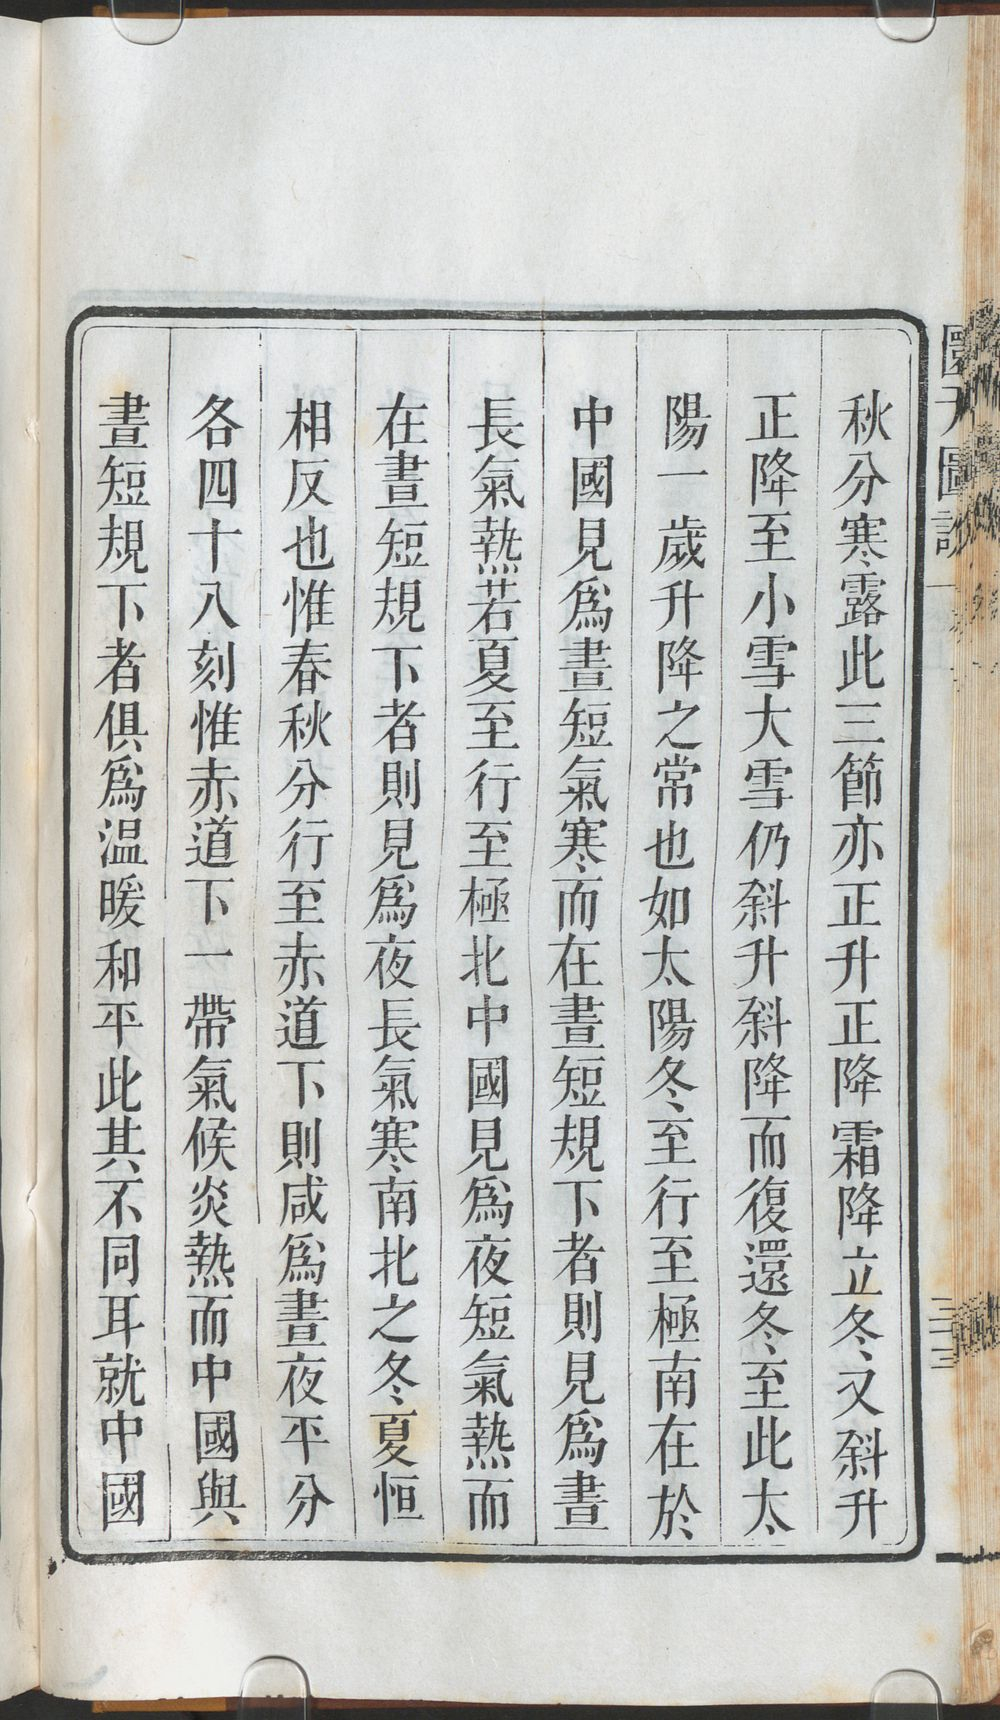 秋分寒露此三節亦正升正降霜降立冬又斜升
正降至小雪大雪仍斜升斜降而復還冬至此太
陽一歲升降之常也如太陽冬至行至極南在於
中國見爲晝短氣寒而在晝短規下者則見爲晝
長氣熱若夏至行至極北中國見爲夜短氣熱而
在晝短規下者則見爲夜長氣寒南北之冬夏恒
相反也惟春秋分行至赤道下則咸爲晝夜平分
各四十八刻惟赤道下一帶氣候炎熱而中國與
晝短規下者俱爲溫暖和平此其不同耳就中國